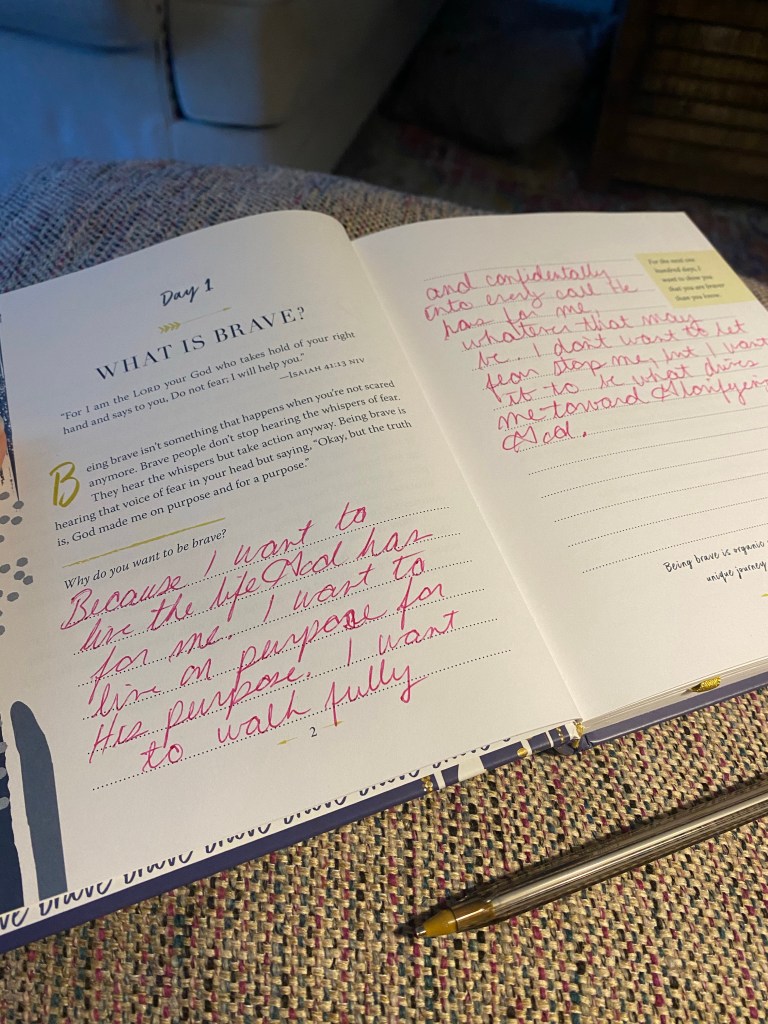 Day 1
WHAT IS BRAVE?
"For I am the LORD your God who takes hold of your right
hand and says to you, Do not fear; I will help you."
—ISAIAH 41:13 NIV
Being brave isn't something that happens when you're not scared
anymore. Brave people don't stop hearing the whispers of fear.
They hear the whispers but take action anyway. Being brave is
hearing that voice of fear in your head but saying, "Okay, but the truth
is, God made me on purpose and for a purpose."
Why do you want to be brave?
Because I want to
live the life God has
for me. I want to
live on purpose for
His purpose. I want
to walk fully
2
and confidentally
into every call He
has for me,
whatever that may
be. I don't want to let
fear stop me, but I want
it to be what drives
me toward Glorifying
God.
For the next one
hundred days, I
want to show you
that you are braver
than you know.
Being brave is organic
unique journey
brave brave brave brave brave brave